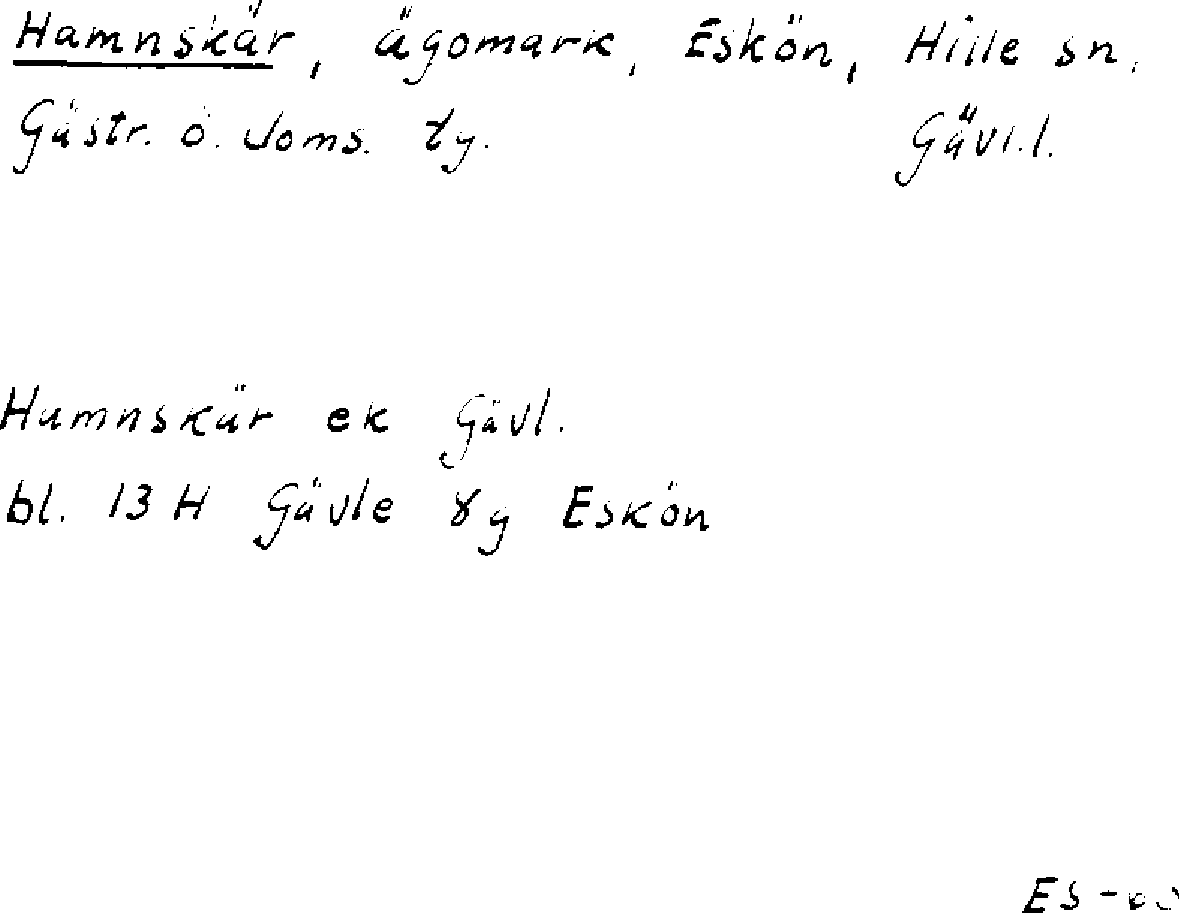 Hamnskär, ägomark, Eskön, Hille sn,
Gästr. ö. doms. Gävl.l.
Hamnskär ek Gävl.
bl. 13 H Gävle 8g Eskön